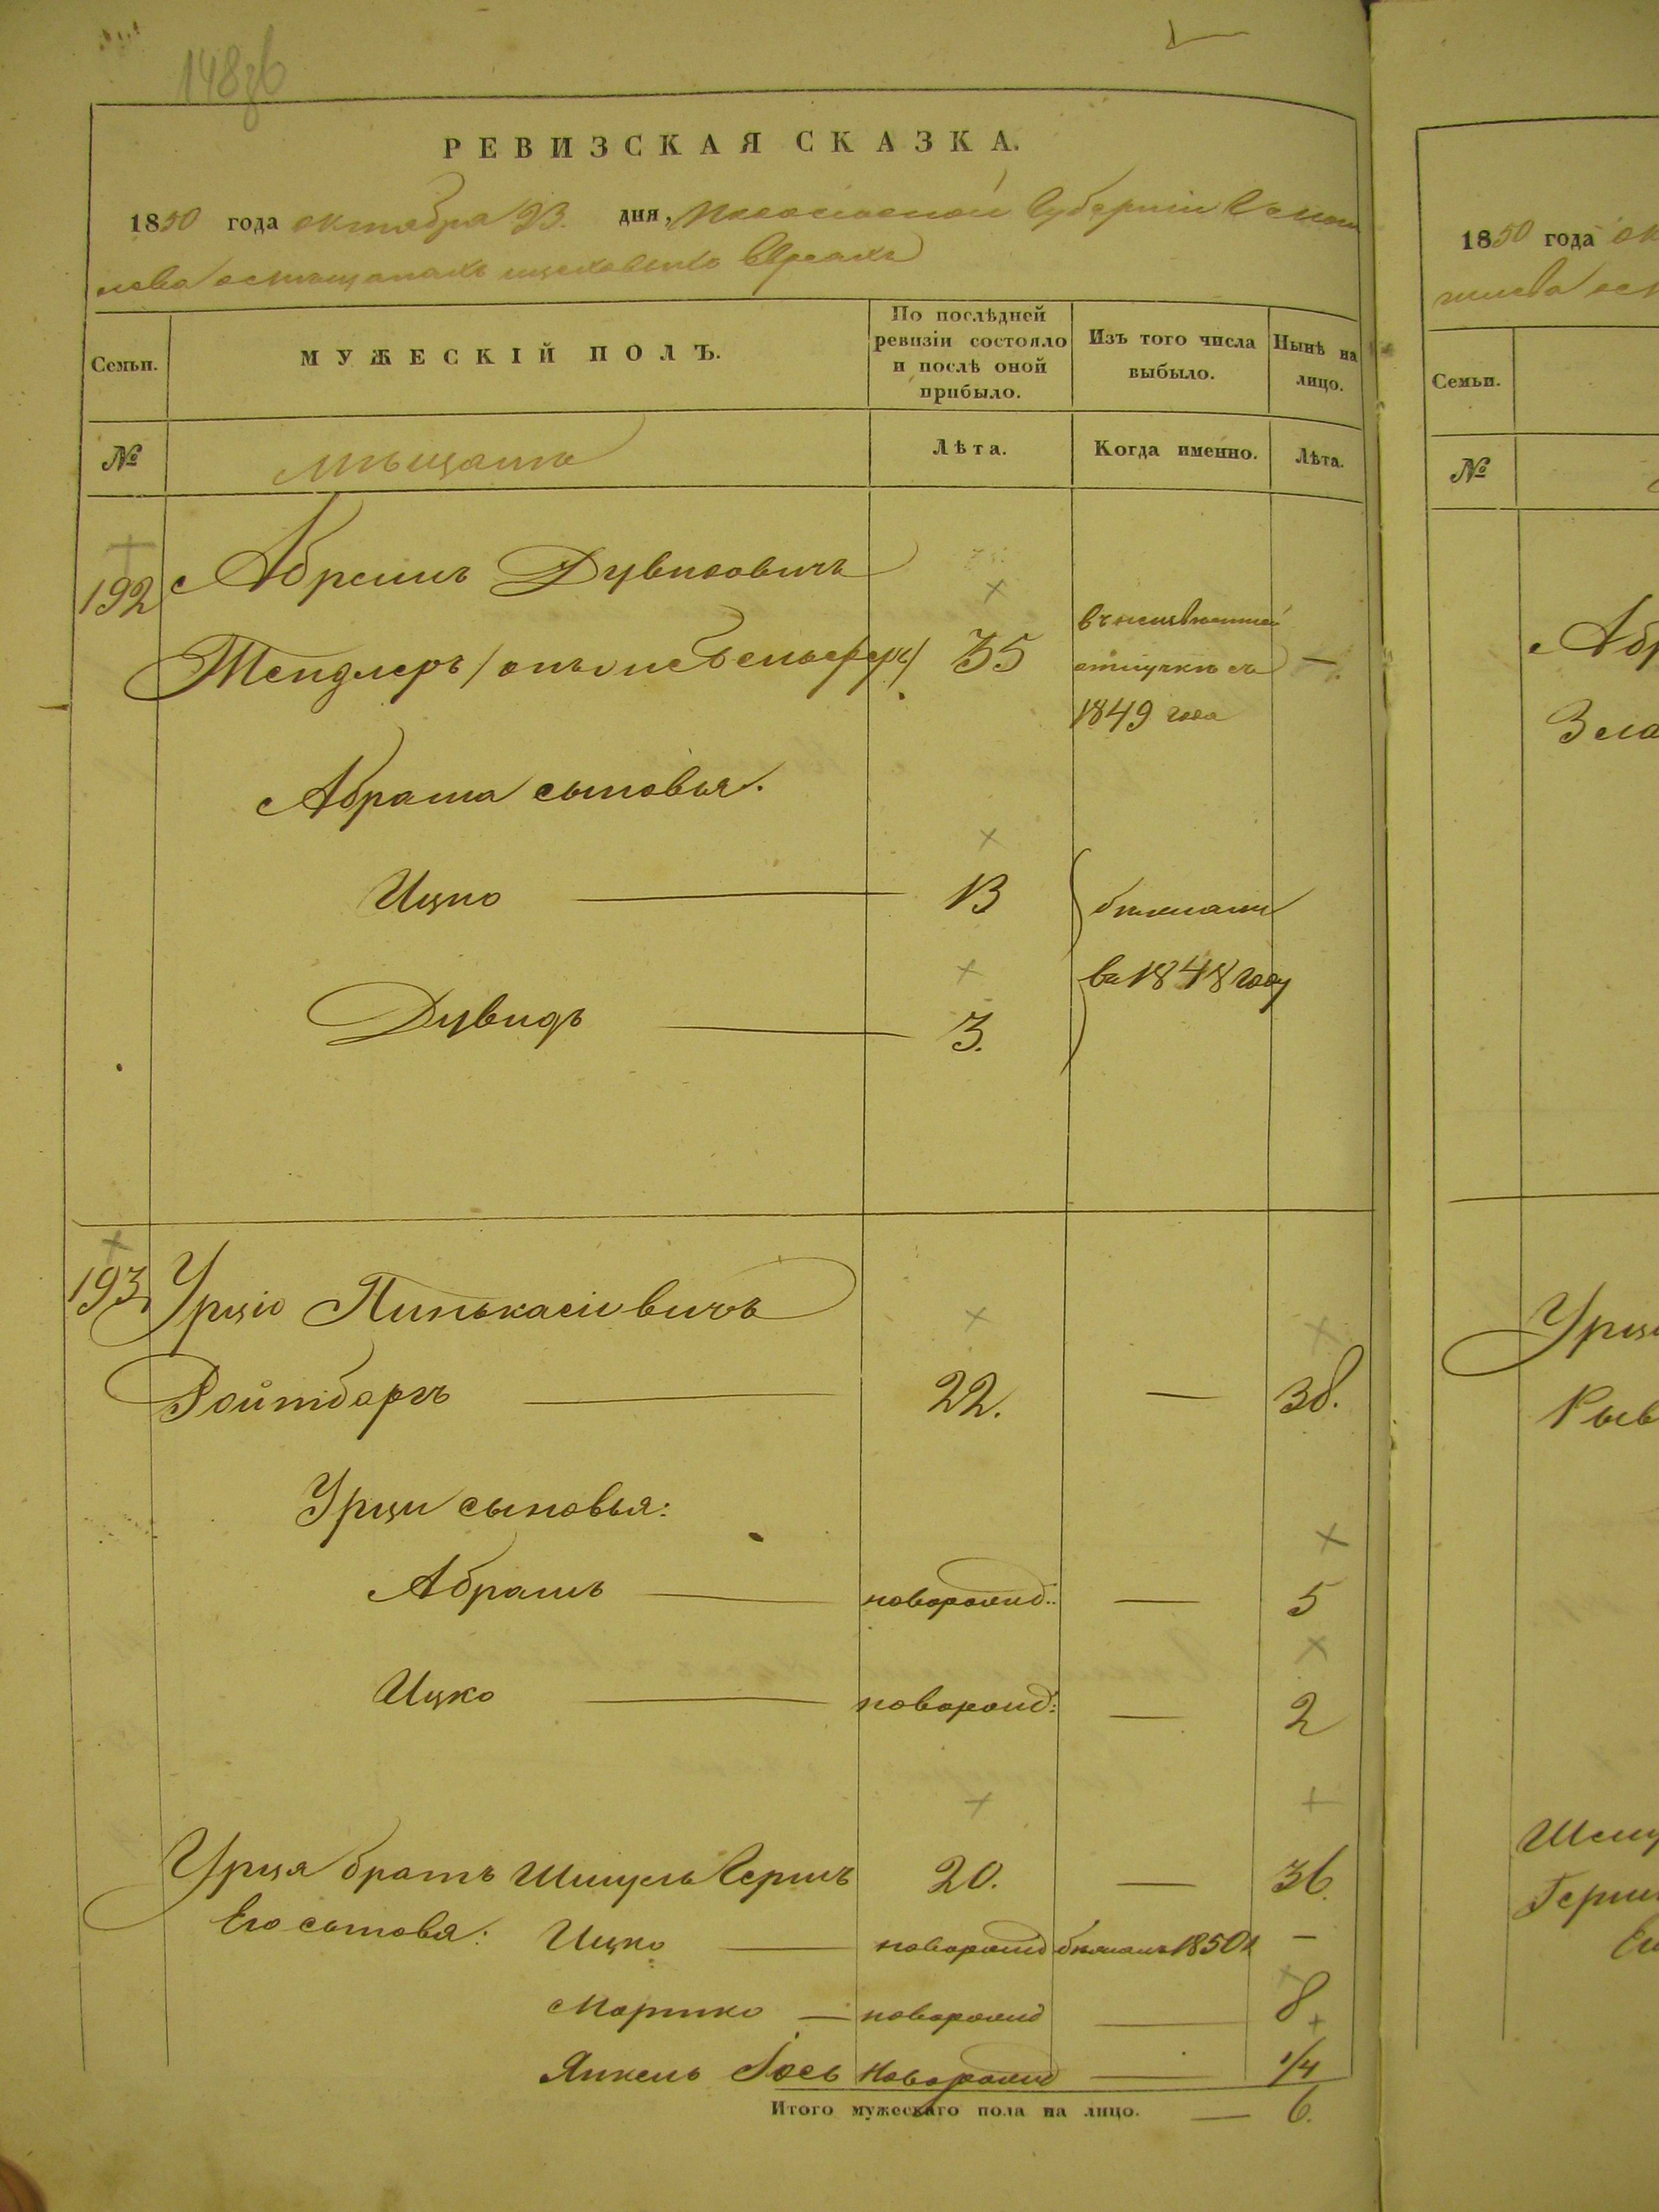 148об
РЕВИЗСКАЯ СКАЗКА.
1850 года октября 23. дня, губерніи
мѣщанахъ Евреахъ
Семьи.
МУЖЕСКІЙ ПОЛЪ.
По послѣдней ревизіи состояло и послѣ оной прибыло.
Изъ того числа выбыло.
Нынѣ на лицо.
№
мѣщане
Лѣта.
Когда именно.
Лѣта.
192 Абрамъ Дувидовичъ
Тендлеръ / онъ 35 въ неизвѣстной отлучкѣ съ 1849 года —
Абрама сыновья.
Ицко — 13 бѣжали
Дувидъ — 3. въ 1848 году
193 Урцiо Пинькасiовичъ
Ройтбаргъ — 22. — 38.
Урци сыновья:
Абрамъ — новорожд: — 5
Ицко — новорожд: — 2
Урця братъ Шмуль Гершъ 20. — 36.
Его сыновя: Ицко — новорожд бѣжалъ 1850 —
Мортко — новорожд — 8
Янкель Іось новорожд — 1/4
Итого мужескаго пола на лицо. — 6.
1850 года
Семьи.
№
Абр
Зла
Урци
Рыв
Шму
Герш
Ег